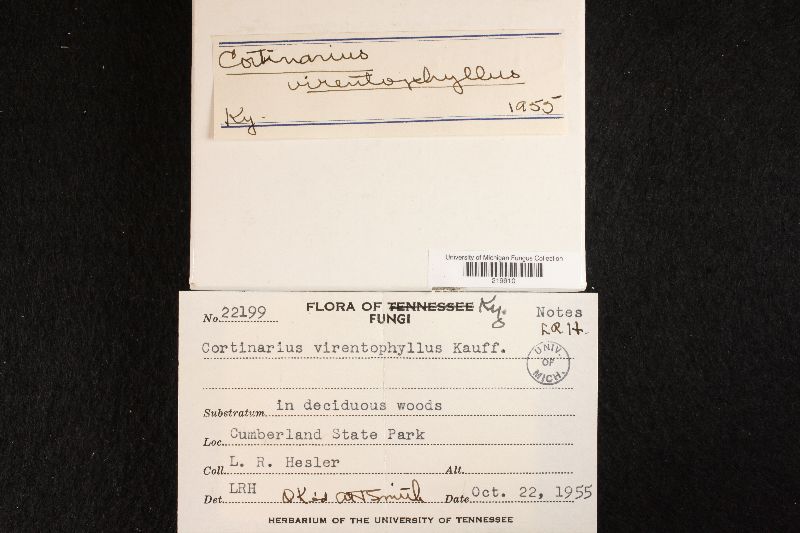 Cortinarius
virentophyllus
Ky. 1955
University of Michigan Fungus Collection
219910
No. 22199 FLORA OF TENNESSEE Ky. Notes
FUNGI L.R.H.
Cortinarius virentophyllus Kauff.
UNIV. OF MICH.
Substratum in deciduous woods
Loc. Cumberland State Park
Coll. L. R. Hesler Alt.
Det. LRH OK'd AHSmith Date Oct. 22, 1955
HERBARIUM OF THE UNIVERSITY OF TENNESSEE